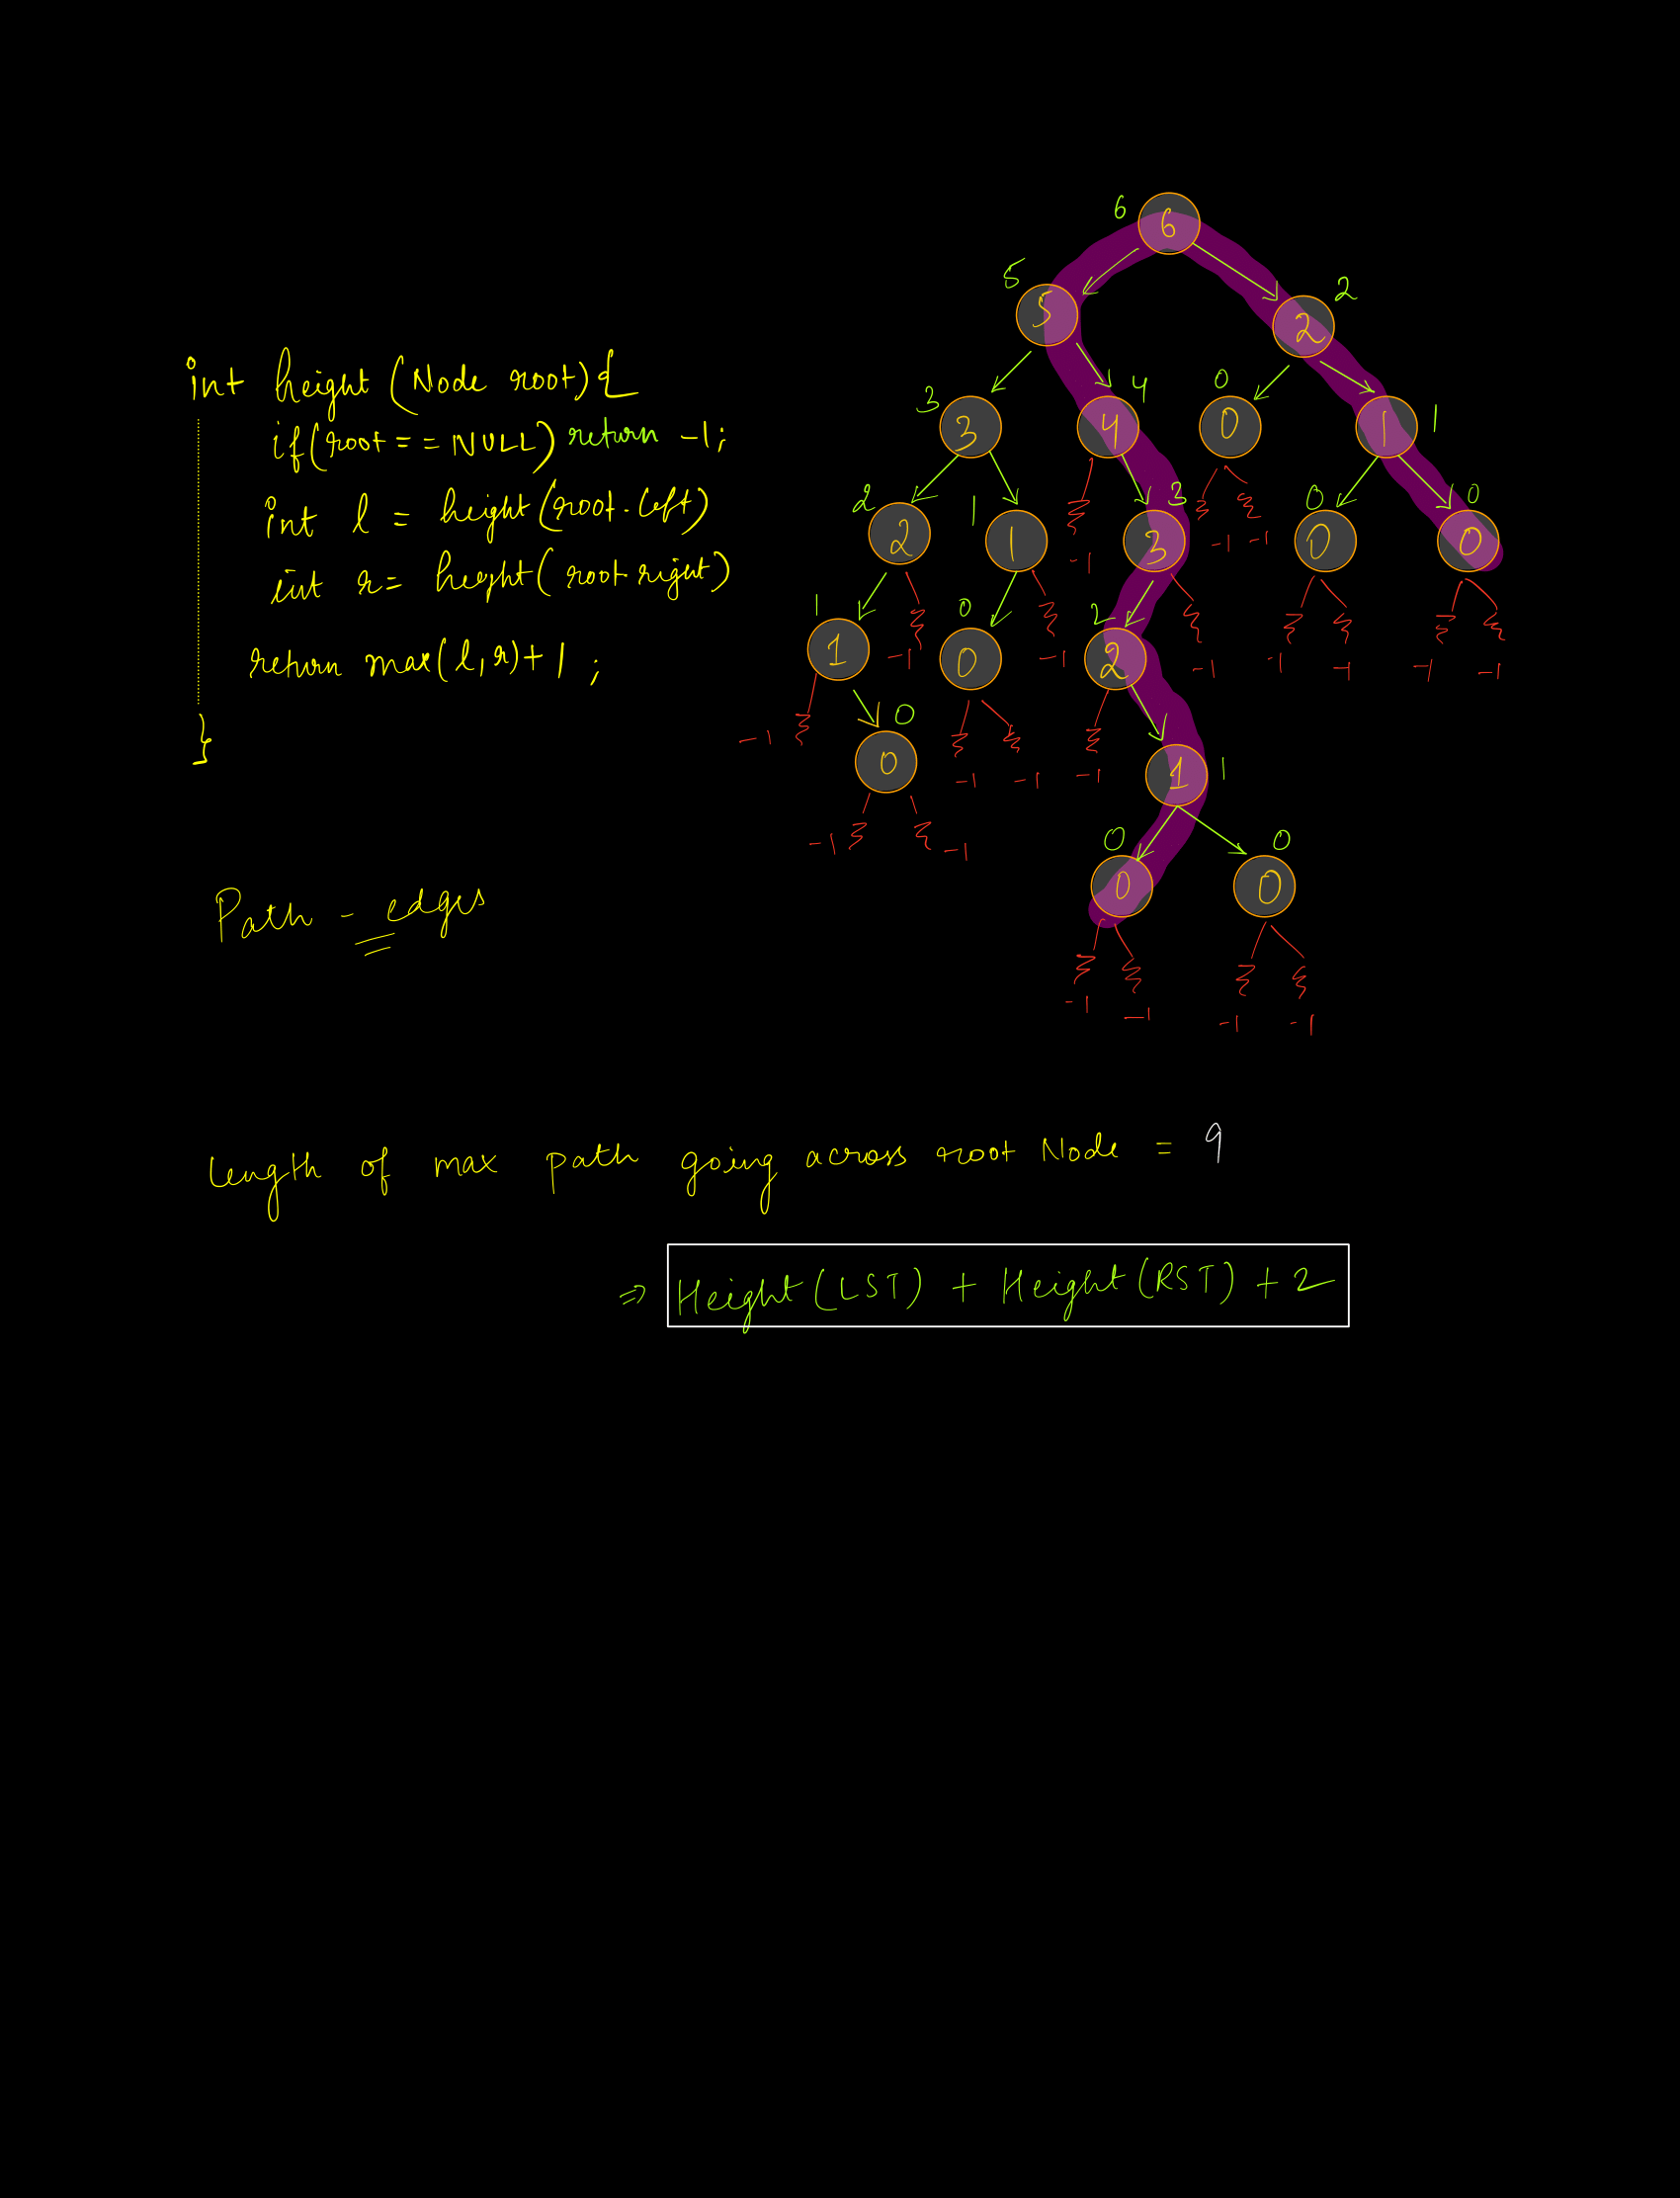 int height (Node root) {
if(root == NULL) return -1;
int l = height(root.left)
int r = height(root.right)
return max(l,r)+1 ;
}
6 6
5 5
2 2
3 3
4 4
0 0
1 1
2 2
1 1
-1
3 3
-1 -1
0 0
0 0
1 1
-1
0 0
-1
2 2
-1
-1 -1
-1 -1
-1
0 0
-1 -1
-1
1 1
-1 -1
0 0
0 0
-1 -1
-1 -1
Path - edges
Length of max path going across root Node = 9
=> Height(LST) + Height(RST) + 2